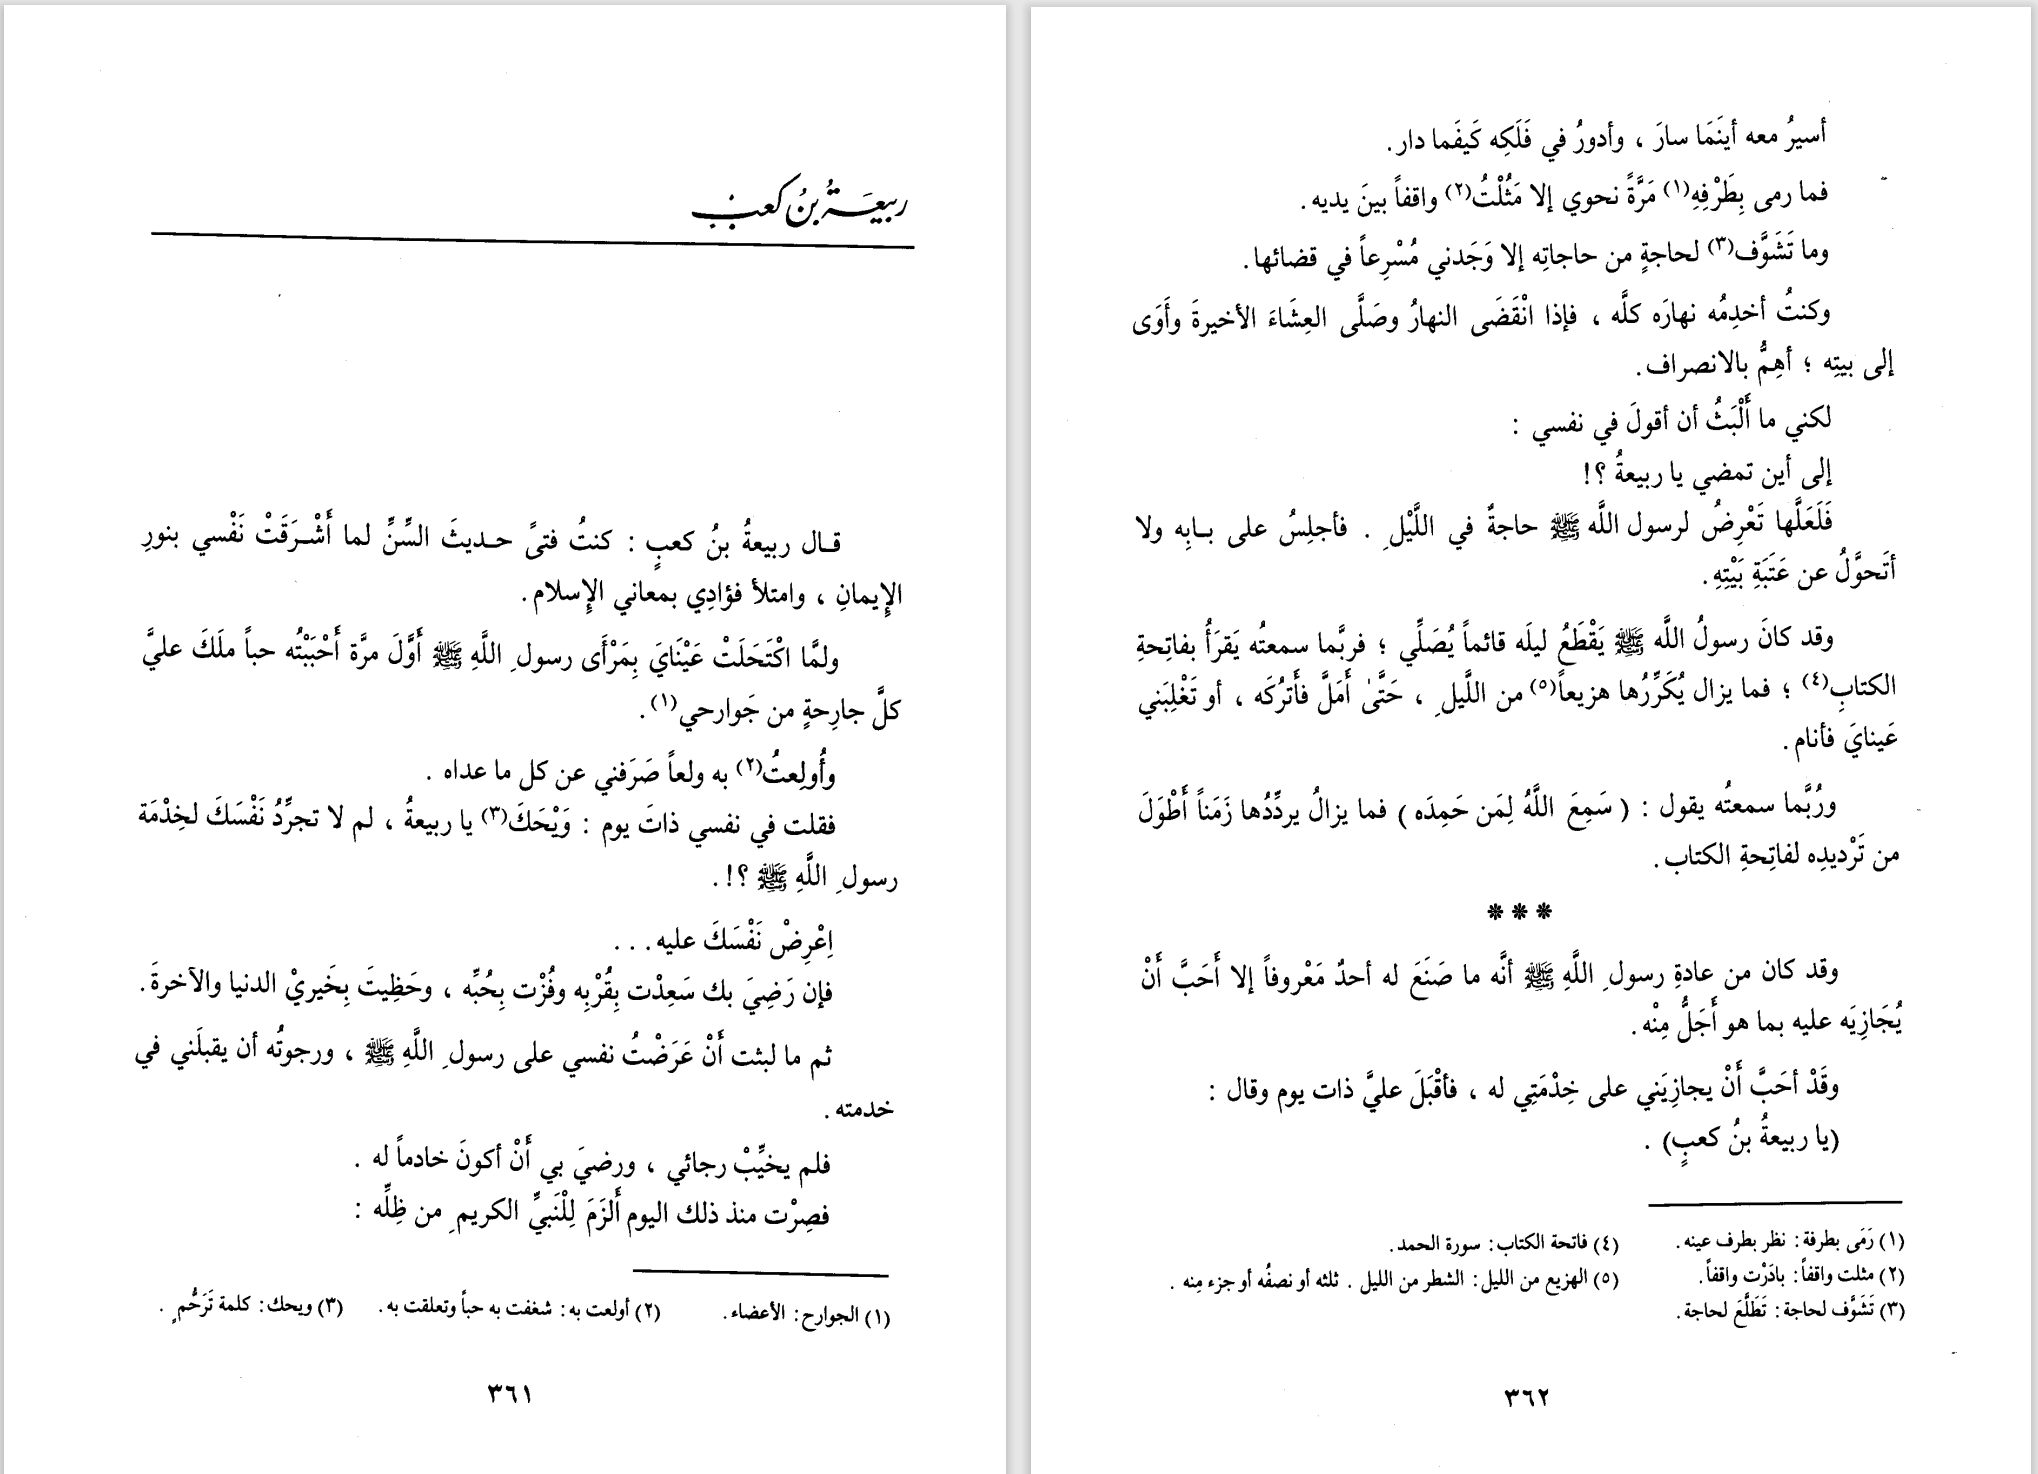 ربيعَةُ بنُ كعب
قـال ربيعةُ بنُ كعبٍ : كنتُ فتىً حـديثَ السِّنِّ لما أَشْـرَقَتْ نَفْسي بنورِ
الإِيمانِ ، وامتلأ فؤادِي بمعاني الإِسلام.
ولمَّا اكْتَحَلَتْ عَيْنَايَ بِمَرْأَى رسولِ اللَّهِ ﷺ أَوَّلَ مرَّة أَحْبَبْتُه حباً ملَكَ عليَّ
كلَّ جارِحةٍ من جَوارحي(١).
وأُولِعتُ(٢) به ولعاً صَرَفني عن كل ما عداه .
فقلت في نفسي ذاتَ يوم : وَيْحَكَ(٣) يا ربيعةُ ، لم لا تجرِّدُ نَفْسَكَ لخِذْمَة
رسولِ اللَّهِ ﷺ ؟!.
اِعْرِضْ نَفْسَكَ عليه. . .
فإن رَضِيَ بك سَعِدْت بِقُرْبِه وفُزْت بِحُبِّه ، وحَظِيتَ بِخَيريْ الدنيا والآخرةَ.
ثم ما لبثت أَنْ عَرَضْتُ نفسي على رسولِ اللَّهِ ﷺ ، ورجوتُه أن يقبلَني في
خدمته .
فلم يخيِّبْ رجائي ، ورضيَ بي أَنْ أكونَ خادماً له .
فصِرْت منذ ذلك اليوم أَلزَمَ لِلْنَبيِّ الكريمِ من ظِلِّه :
(١) الجوارح: الأعضاء. (٢) أولعت به: شغفت به حباً وتعلقت به. (٣) ويحك: كلمة تَرَحُّمٍ .
٣٦١
أسيرُ معه أينَمَا سارَ ، وأدورُ في فَلَكِه كَيفَما دار.
فما رمى بِطَرْفِهِ(١) مَرَّةً نحوي إلا مَثُلْتُ(٢) واقفاً بينَ يديه.
وما تَشَوَّف(٣) لحاجةٍ من حاجاتِه إلا وَجَدني مُسْرِعاً في قضائها.
وكنتُ أخدِمُه نهارَه كلَّه ، فإذا انْقَضَى النهارُ وصَلَّى العِشَاءَ الأخيرةَ وأَوَى
إلى بيتِه ؛ أهِمُّ بالانصراف.
لكني ما أَلْبَثُ أن أقولَ في نفسي :
إلى أين تمضي يا ربيعةُ ؟!
فَلَعَلَّها تَعْرِضُ لرسول اللَّه ﷺ حاجةٌ في اللَّيْلِ . فأجلِسُ على بـابِه ولا
أتَحوَّلُ عن عَتَبَةِ بَيْتِهِ.
وقد كانَ رسولُ اللَّه ﷺ يَقْطَعُ ليلَه قائماً يُصَلِّي ؛ فربَّما سمعتُه يَقرَأُ بفاتِحةِ
الكتابِ(٤) ؛ فما يزال يُكَرِّرُها هزيعاً(٥) من اللَّيلِ ، حَتَّىٰ أَمَلَّ فأَتْرُكَه ، أو تَغْلِبَني
عَينايَ فأنام.
ورُبَّما سمعتُه يقول : ( سَمِعَ اللَّهُ لِمَن حَمِدَه ) فما يزالُ يردِّدُها زَمَناً أَطْوَلَ
من تَرْديدِه لفاتِحةِ الكتاب.
***
وقد كان من عادةِ رسولِ اللَّهِ ﷺ أنَّه ما صَنَعَ له أحدٌ مَعْروفاً إلا أَحَبَّ أَنْ
يُجَازِيَه عليه بما هو أَجَلُّ مِنْه.
وقَدْ أحَبَّ أَنْ يجازِيَني على خِذْمَتِي له ، فأقْبَلَ عليَّ ذات يوم وقال :
(يا ربيعةُ بنُ كعبٍ) .
(١) رَمَى بطرفة: نظر بطرف عينه.
(٢) مثلت واقفاً: بادَرْت واقفاً.
(٣) تَشَوَّف لحاجة: تَطَلَّعَ لحاجة.
(٤) فاتحة الكتاب: سورة الحمد.
(٥) الهزيع من الليل: الشطر من الليل . ثلثه أو نصفُه أو جزء مِنه .
٣٦٢